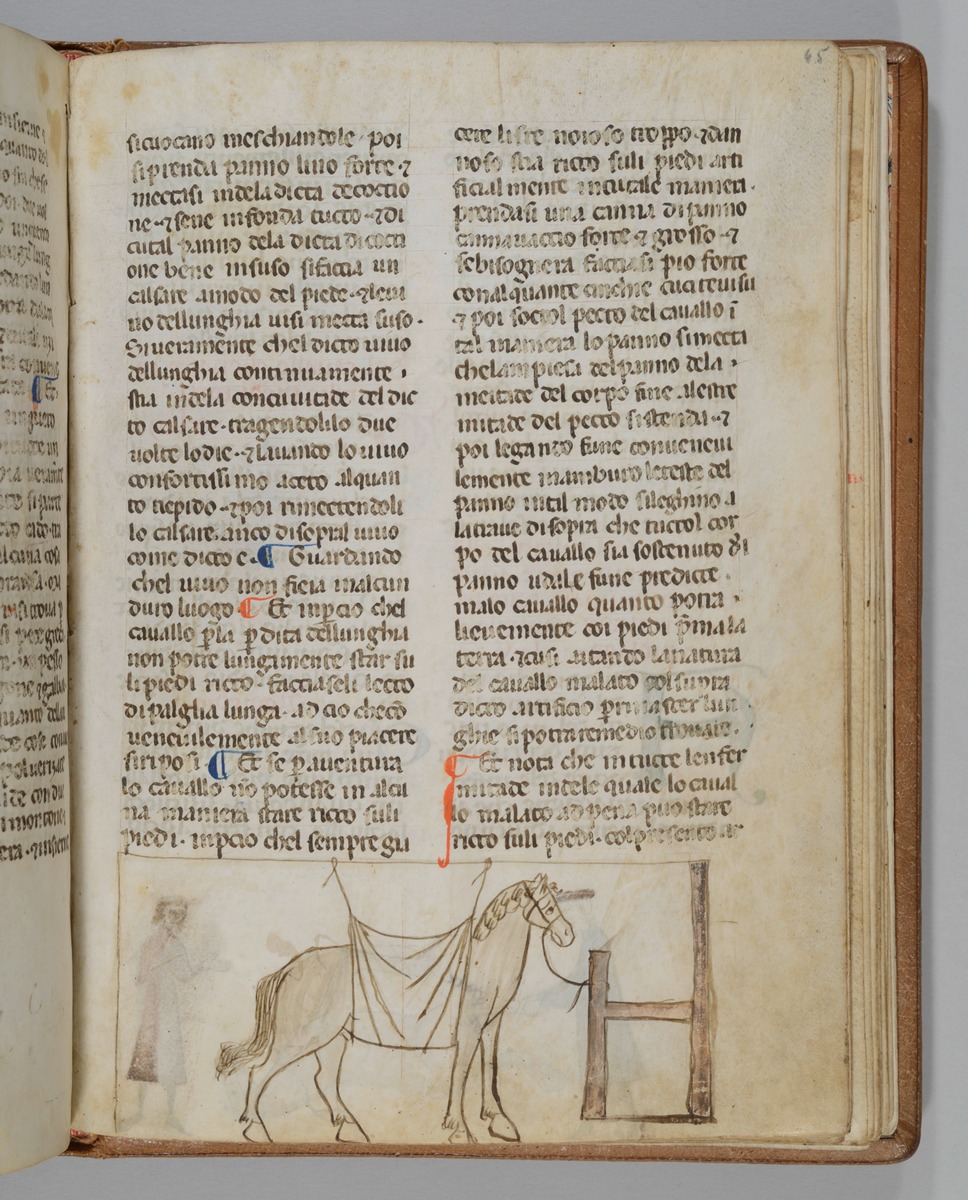 65
sicuocano meschiandole poi
siprenda panno lino forte ⁊
mectasi indela dicta decoctio
ne ⁊ sene infonda tucto ⁊ di
cutal panno dela dicta dicocti
one bene infuso sifaccia un
calsare amodo del piede ⁊ leui
uo dellunghia uisi mecta suso.
Siueramente chel dicto uiuo
dellunghia continuamente
stia indela concauitade del dic
to calsare. tragendolilo due
uolte lo die. ⁊ lauando lo uiuo
confortissimo aceto alquan
to tiepido ⁊ poi rimectendoli
lo calsare. anco disopral uiuo
come dicto e. ¶ Guardando
chel uiuo non fiera inalcun
duro luogo ¶ Et inꝑcio chel
cauallo ꝑla ꝑdita dellunghia
non potre lungamente star su
li piedi ricto. facciaseli lecto
dipalglia lunga. ad cio checo
ueneuilemente alsuo piacere
siriposi. ¶ Et se ꝑauentura
lo cauallo nō potesse in alcu
na maniera stare ricto suli
piedi. inꝑcio chel sempre gia
cere li sre noioso troppo ⁊ dan
noso stia ricto suli piedi arti
ficialmente incutale maniera.
prendasi una canna dipanno
cannauaccio forte ⁊ grosso ⁊
sebisognera facciasi pio forte
conalquante cinghie cucteuisu
⁊ poi soctol pecto del cauallo ī
tal maniera lo panno simecta
chelampiesa delpanno dela
meitade del corpo fine alame
mitade del pecto sistenda ⁊
poi legando fune conueneui
lemente inamburo leteste del
panno intal modo sileghino a
latraue disopra che tuctol cor
po del cauallo sia sostenuto dal
panno ⁊ dale fune predicte.
inalo cauallo quanto potra
lieuemente coi piedi p̄ma la
terra. ⁊ cusi aitando lanatura
del cauallo malato colsupra
dicto artificio ꝑrinascer lun
ghie sipotra remedio trouare.
¶ Et nota che in tucte lenfer
mitade indele quale lo caual
lo malato adpena puo stare
ricto suli piedi. colpresento ar